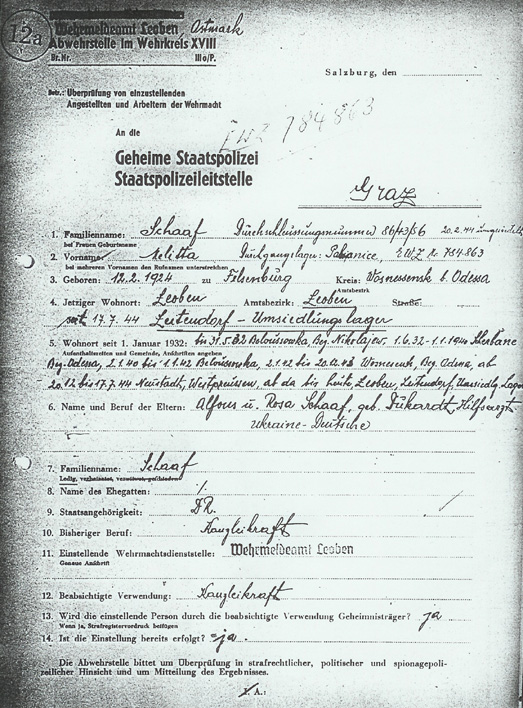 12a
Wehrmeldeamt Leoben Ostmark
Abwehrstelle im Wehrkreis XVIII
Br.Nr. III c/P.
Salzburg, den
Betr.: Überprüfung von einzustellenden
Angestellten und Arbeitern der Wehrmacht
EWZ 784863
An die
Geheime Staatspolizei
Staatspolizeileitstelle
Graz
1. Familienname: Schaaf Durchschleusungsnummer 86/43/56 20.2.44
bei Frauen Geburtsname
2. Vorname: Melitta Durchgangslager: Pabianice, EWZ Nr. 784.863
bei mehreren Vornamen den Rufnamen unterstreichen
3. Geboren: 12.2.1924 zu Felsenburg Kreis: Wosnessensk b. Odessa
Amtsbezirk
4. Jetziger Wohnort: Leoben Amtsbezirk: Leoben Straße:
seit 17.7.44 Leitendorf - Umsiedlungslager
5. Wohnort seit 1. Januar 1932: bis 31.5.32 Beg. Nikolajew, 1.6.32 - 1.1.1940
Aufenthaltszeiten und Gemeinde, Anschriften angeben
Beg. Odessa, 2.1.40 bis 1.1.42 2.1.42 bis Beg. Odessa, ab
20.12 bis 17.7.44 Neustadt, Westpreussen, ab da bis heute Leoben, Leitendorf, Umsiedlg. Lager
6. Name und Beruf der Eltern: Alfons u. Rosa Schaaf, geb. Dukardt, Hilfsarzt
Ukraine-Deutsche
7. Familienname: Schaaf
Ledig, verheiratet, verwitwet, geschieden
8. Name des Ehegatten: ./.
9. Staatsangehörigkeit: DR.
10. Bisheriger Beruf: Kanzleikraft
11. Einstellende Wehrmachtsdienststelle: Wehrmeldeamt Leoben
Genaue Anschrift
12. Beabsichtigte Verwendung: Kanzleikraft
13. Wird die einstellende Person durch die beabsichtigte Verwendung Geheimnisträger? ja
Wenn ja, Strafregistervordruck beifügen
14. Ist die Einstellung bereits erfolgt? ja.
Die Abwehrstelle bittet um Überprüfung in strafrechtlicher, politischer und spionagepoli-
zeilicher Hinsicht und um Mitteilung des Ergebnisses.
I. A.: